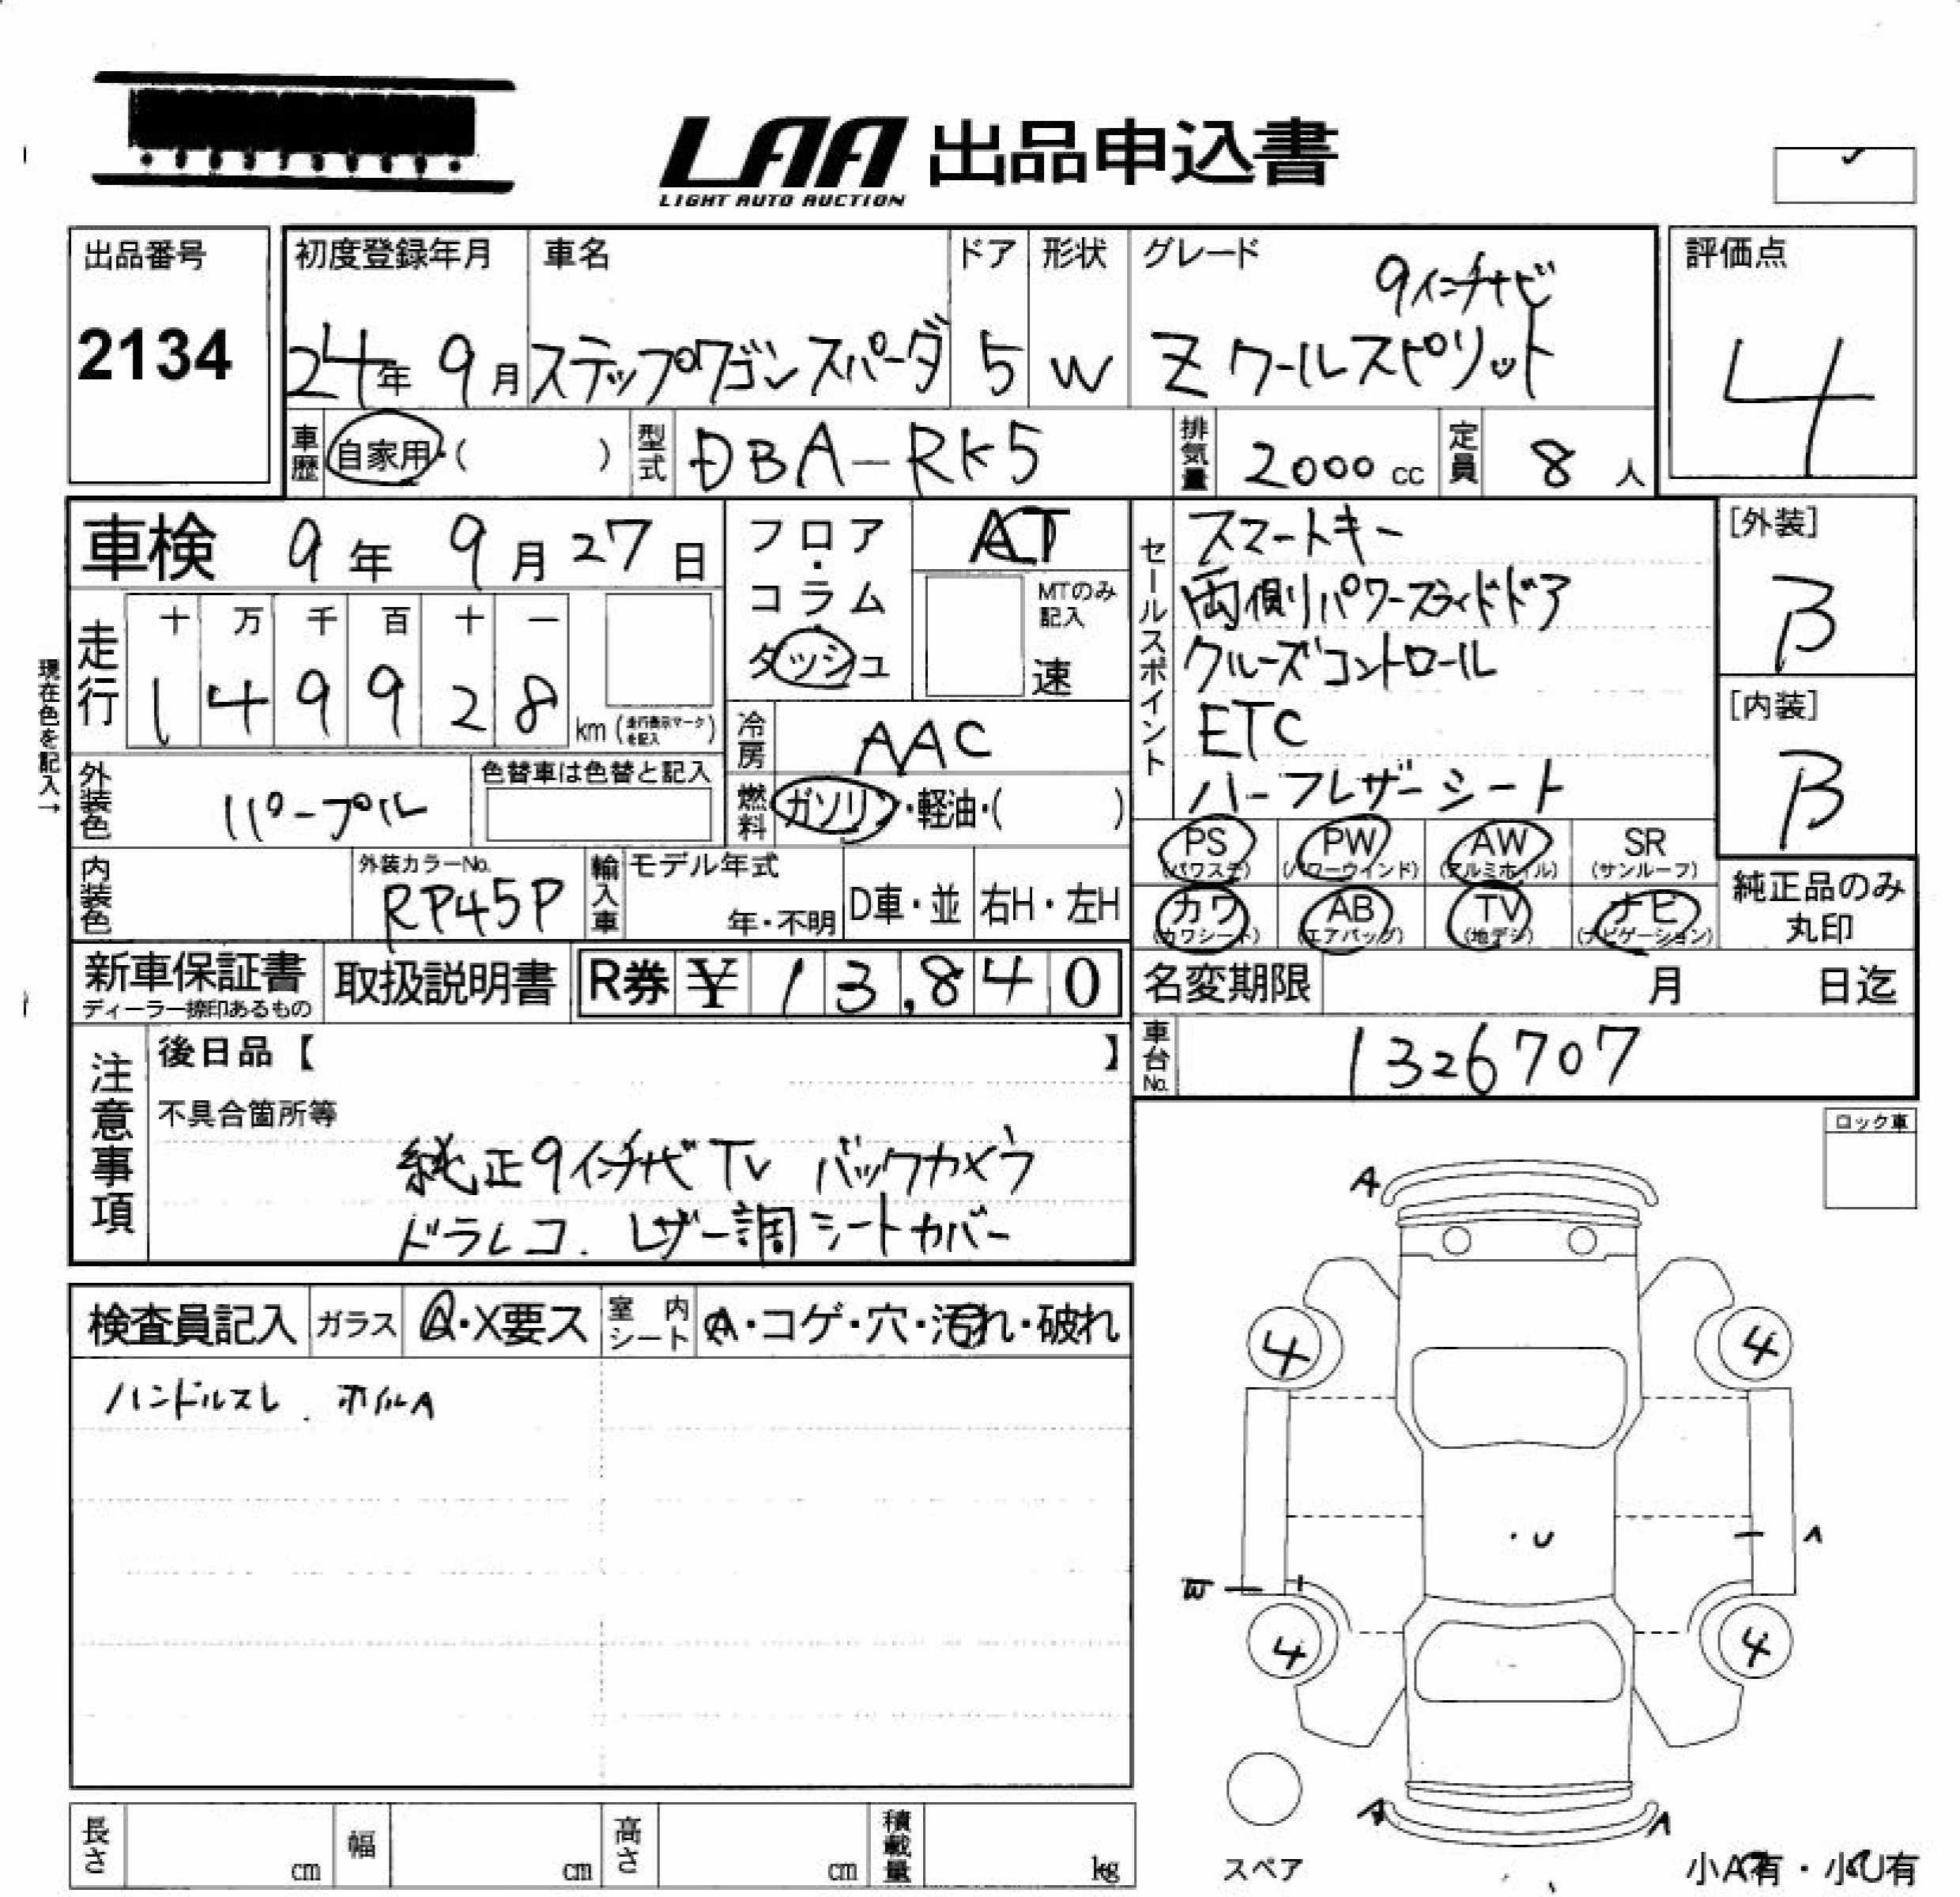 LAA 出品申込書
LIGHT AUTO AUCTION
出品番号
2134
初度登録年月
24年 9月
車名
ステップワゴンスパーダ
ドア
5
形状
W
グレード
9インチナビ
Z クールスピリット
評価点
4
車歴 自家用・( )
型式 DBA-RK5
排気量 2000 cc
定員 8 人
車検 9年 9月 27日
フロア・コラム・ダッシュ
AT
MTのみ記入
速
セールスポイント
スマートキー
両側パワースライドドア
クルーズコントロール
ETC
ハーフレザーシート
[外装]
B
[内装]
B
現在色を記入→
走行
十 万 千 百 十 一
1 4 9 9 2 8 km (走行表示マークを記入)
冷房 AAC
外装色 パープル
色替車は色替と記入
燃料 ガソリン・軽油・( )
PS (パワステ)
PW (パワーウインド)
AW (アルミホイル)
SR (サンルーフ)
カワ (カワシート)
AB (エアバッグ)
TV (地デジ)
ナビ (ナビゲーション)
純正品のみ丸印
内装色
外装カラーNo.
RP45P
輸入車
モデル年式
年・不明
D車・並
右H・左H
新車保証書
ディーラー捺印あるもの
取扱説明書
R券 ¥ 13,840
名変期限 月 日迄
車台No. 1326707
注意事項
後日品【 】
不具合箇所等
純正9インチナビ TV バックカメラ
ドラレコ. レザー調シートカバー
ロック車
検査員記入
ガラス A・X要ス
室内シート A・コゲ・穴・汚れ・破れ
ハンドルスレ. ホイルA
A
4 4
・U
A
W
4 4
A A
スペア
小A有・小U有
長さ cm
幅 cm
高さ cm
積載量 kg